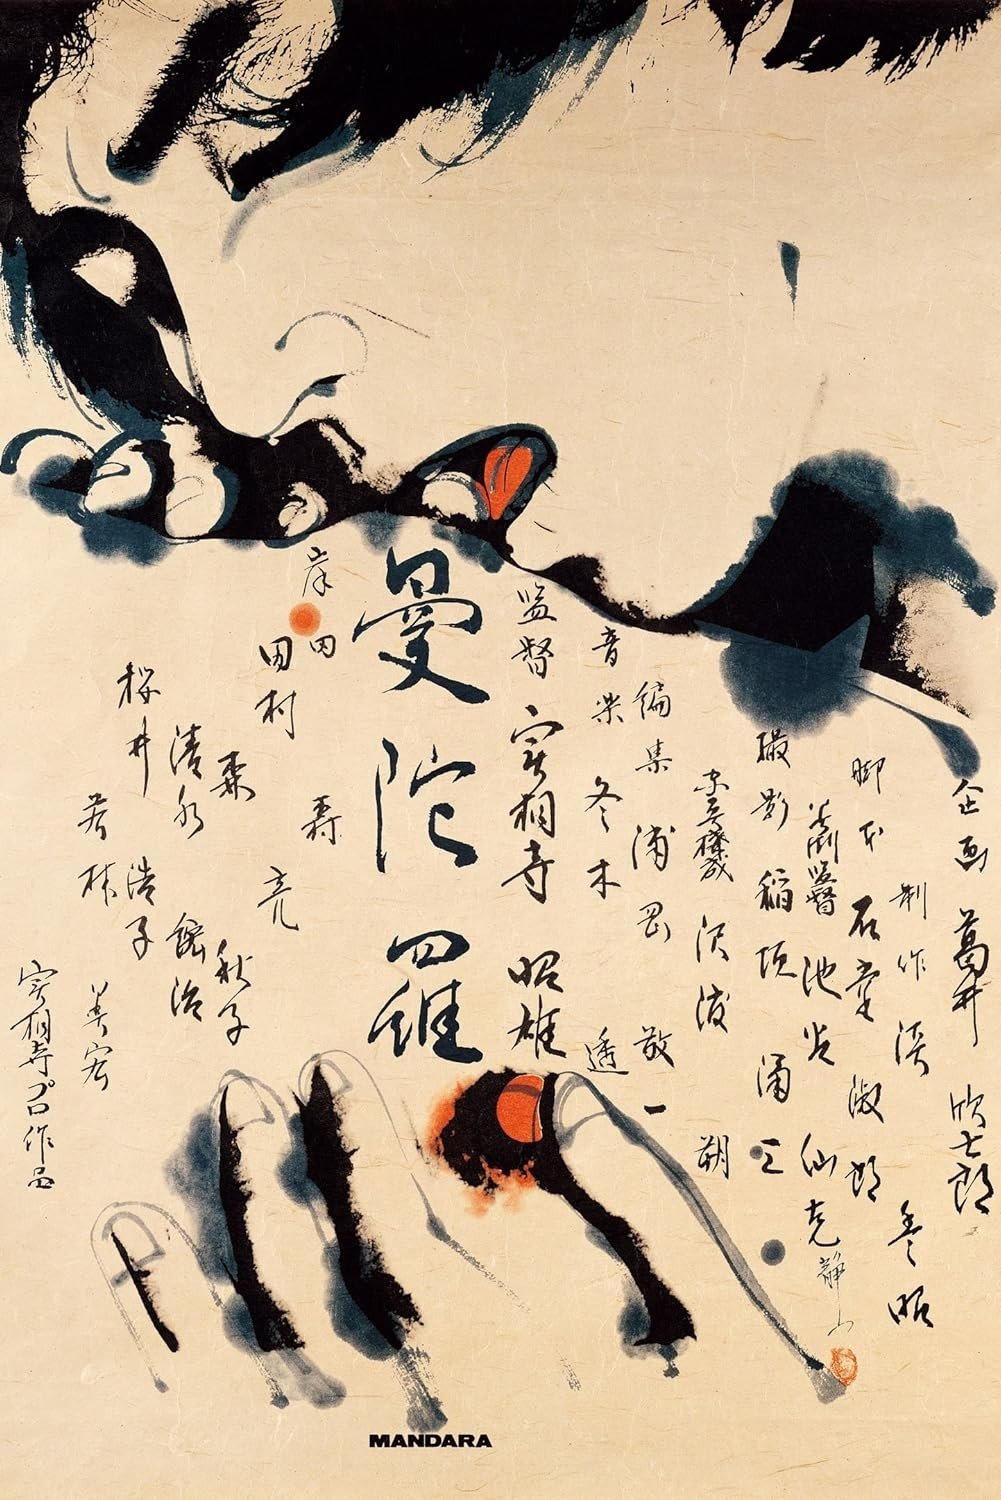 企画 葛井 欣士郎
制作 淡 豊昭
脚本 石堂 淑郎
美術監督 池谷 仙克
撮影 稲垣 涌三
沢渡 朔
編集 浦岡 敬一
音楽 冬木 透
監督 実相寺 昭雄
曼陀羅
岸田 森
田村 亮
清水 紘治
桜井 浩子
若林 美宏
実相寺プロ作品
静山
MANDARA